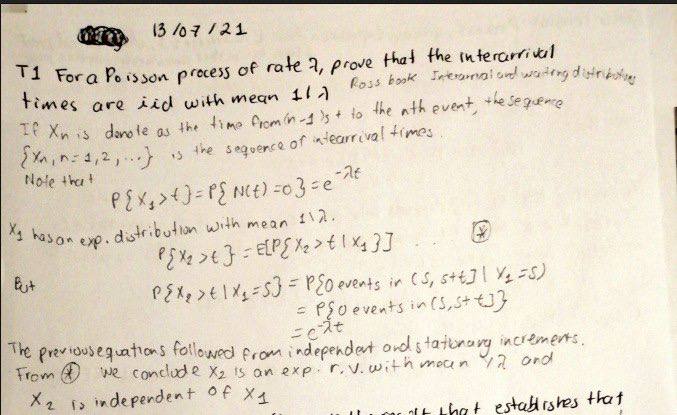 13/07/21
T1 For a Poisson process of rate λ, prove that the interarrival
times are iid with mean 1/λ Ross book Interarrival and waiting distributions
If Xn is denote as the time from (n-1)st to the nth event, the sequence
{Xn, n=1,2,...} is the sequence of intearrival times.
Note that
P{X₁>t}=P{N(t)=0}=e^-λt
X₁ has an exp. distribution with mean 1/λ.
P{X₂>t}=E[P{X₂>t|X₁}] ... *
But
P{X₂>t|X₁=s}=P{0 events in (s, s+t]|X₁=s)
=P{0 events in (s, s+t]}
=e^-λt
The previous equations followed from independent and stationary increments.
From * we conclude X₂ is an exp. r.v. with mean 1/λ and
X₂ is independent of X₁
that establishes that